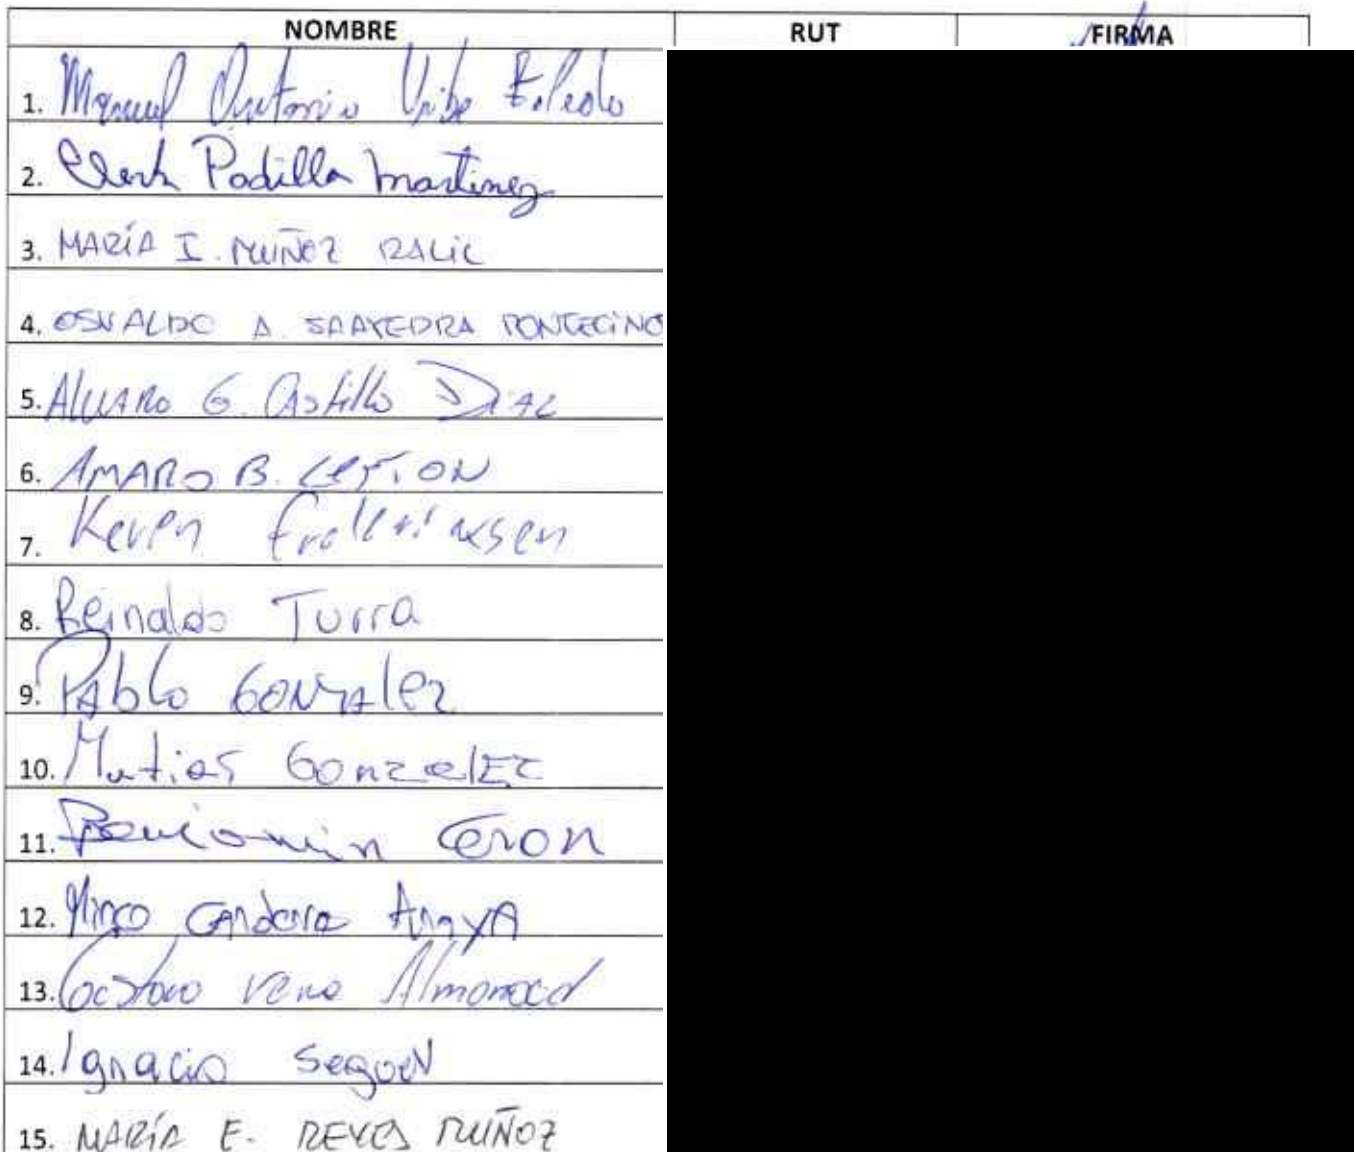 NOMBRE RUT FIRMA
1. Manuel Antonio Uribe
2. Padilla Martinez
3. MARÍA I. MUÑOZ RALIL
4. OSVALDO A. SAAVEDRA PONTECINO
5. Alvaro G. Castillo DiAz
6. AMARO B.
7. Keven
8. Reinaldo Turra
9. PAblo GONzAlez
10. Matias GonzalEz
11. Benjamin Ceron
12. AnAyA
13. Gustavo Vera Almonacid
14. Ignacio Seguel
15. MARÍA E. REYES MUÑOZ